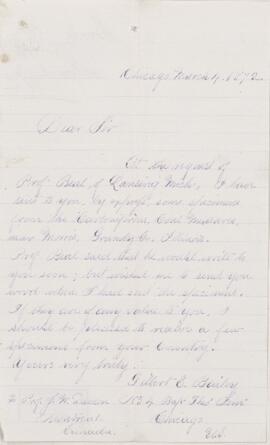 Chicago, March 4, 1872.
Dear Sir
At the request of
Prof. Beal, of Lansing Mich., I have
sent to you, by express, some specimens
from the Carboniferous, Coal Measures,
near Morris, Grundy Co. Illinois.
Prof. Beal said that he would write to
you soon; but wished me to send you
word when I had sent the specimens.
If they are of any value to you, I
should be pleased to receive a few
specimens from your Country.
Yours very truly
Gilbert E. Bailey
To Prof. J. W. Dawson
Montreal Chicago
Canada Ill.